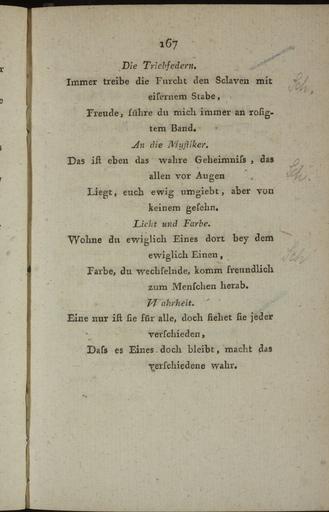 167
Die Triebfedern.
Immer treibe die Furcht den Sclaven mit
eiſernem Stabe,
Freude, führe du mich immer an roſig-
tem Band.
An die Myſtiker.
Das iſt eben das wahre Geheimniſs, das
allen vor Augen
Liegt, euch ewig umgiebt, aber von
keinem geſehn.
Licht und Farbe.
Wohne du ewiglich Eines dort bey dem
ewiglich Einen,
Farbe, du wechſelnde, komm freundlich
zum Menſchen herab.
Wahrheit.
Eine nur iſt ſie für alle, doch ſiehet ſie jeder
verſchieden,
Daſs es Eines doch bleibt, macht das
verſchiedene wahr.
Sch.
Sch.
Sch